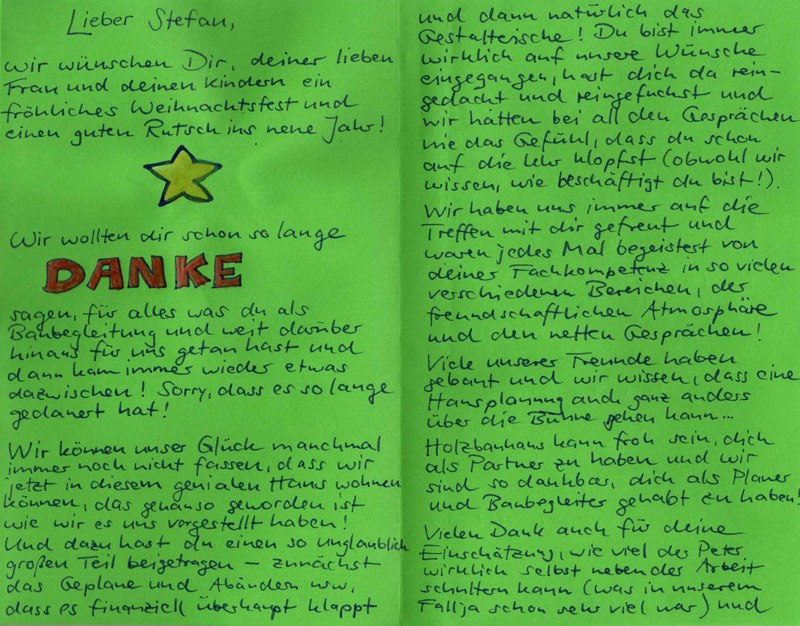 Lieber Stefan,
wir wünschen Dir, deiner lieben
Frau und deinen Kindern ein
fröhliches Weihnachtsfest und
einen guten Rutsch ins neue Jahr!
Wir wollten dir schon so lange
DANKE
sagen, für alles was du als
Baubegleitung und weit darüber
hinaus für uns getan hast und
dann kam immer wieder etwas
dazwischen! Sorry, dass es so lange
gedauert hat!
Wir können unser Glück manchmal
immer noch nicht fassen, dass wir
jetzt in diesem genialen Haus wohnen
können, das genauso geworden ist
wie wir es uns vorgestellt haben!
Und dazu hast du einen so unglaublich
großen Teil beigetragen – zunächst
das Geplane und Abändern usw.,
dass es finanziell überhaupt klappt
und dann natürlich das
Gestalterische! Du bist immer
wirklich auf unsere Wünsche
eingegangen, hast dich da rein-
gedacht und reingefuchst und
wir hatten bei all den Gesprächen
nie das Gefühl, dass du schon
auf die Uhr klopfst (obwohl wir
wissen, wie beschäftigt du bist!).
Wir haben uns immer auf die
Treffen mit dir gefreut und
waren jedes Mal begeistert von
deiner Fachkompetenz in so vielen
verschiedenen Bereichen, der
freundschaftlichen Atmosphäre
und den netten Gesprächen!
Viele unserer Freunde haben
gebaut und wir wissen, dass eine
Hausplanung auch ganz anders
über die Bühne gehen kann...
Holzbauhaus kann froh sein, dich
als Partner zu haben und wir
sind so dankbar, dich als Planer
und Baubegleiter gehabt zu haben!
Vielen Dank auch für deine
Einschätzung, wie viel der Peter
wirklich selbst neben der Arbeit
schultern kann (was in unserem
Fall ja schon sehr viel war) und